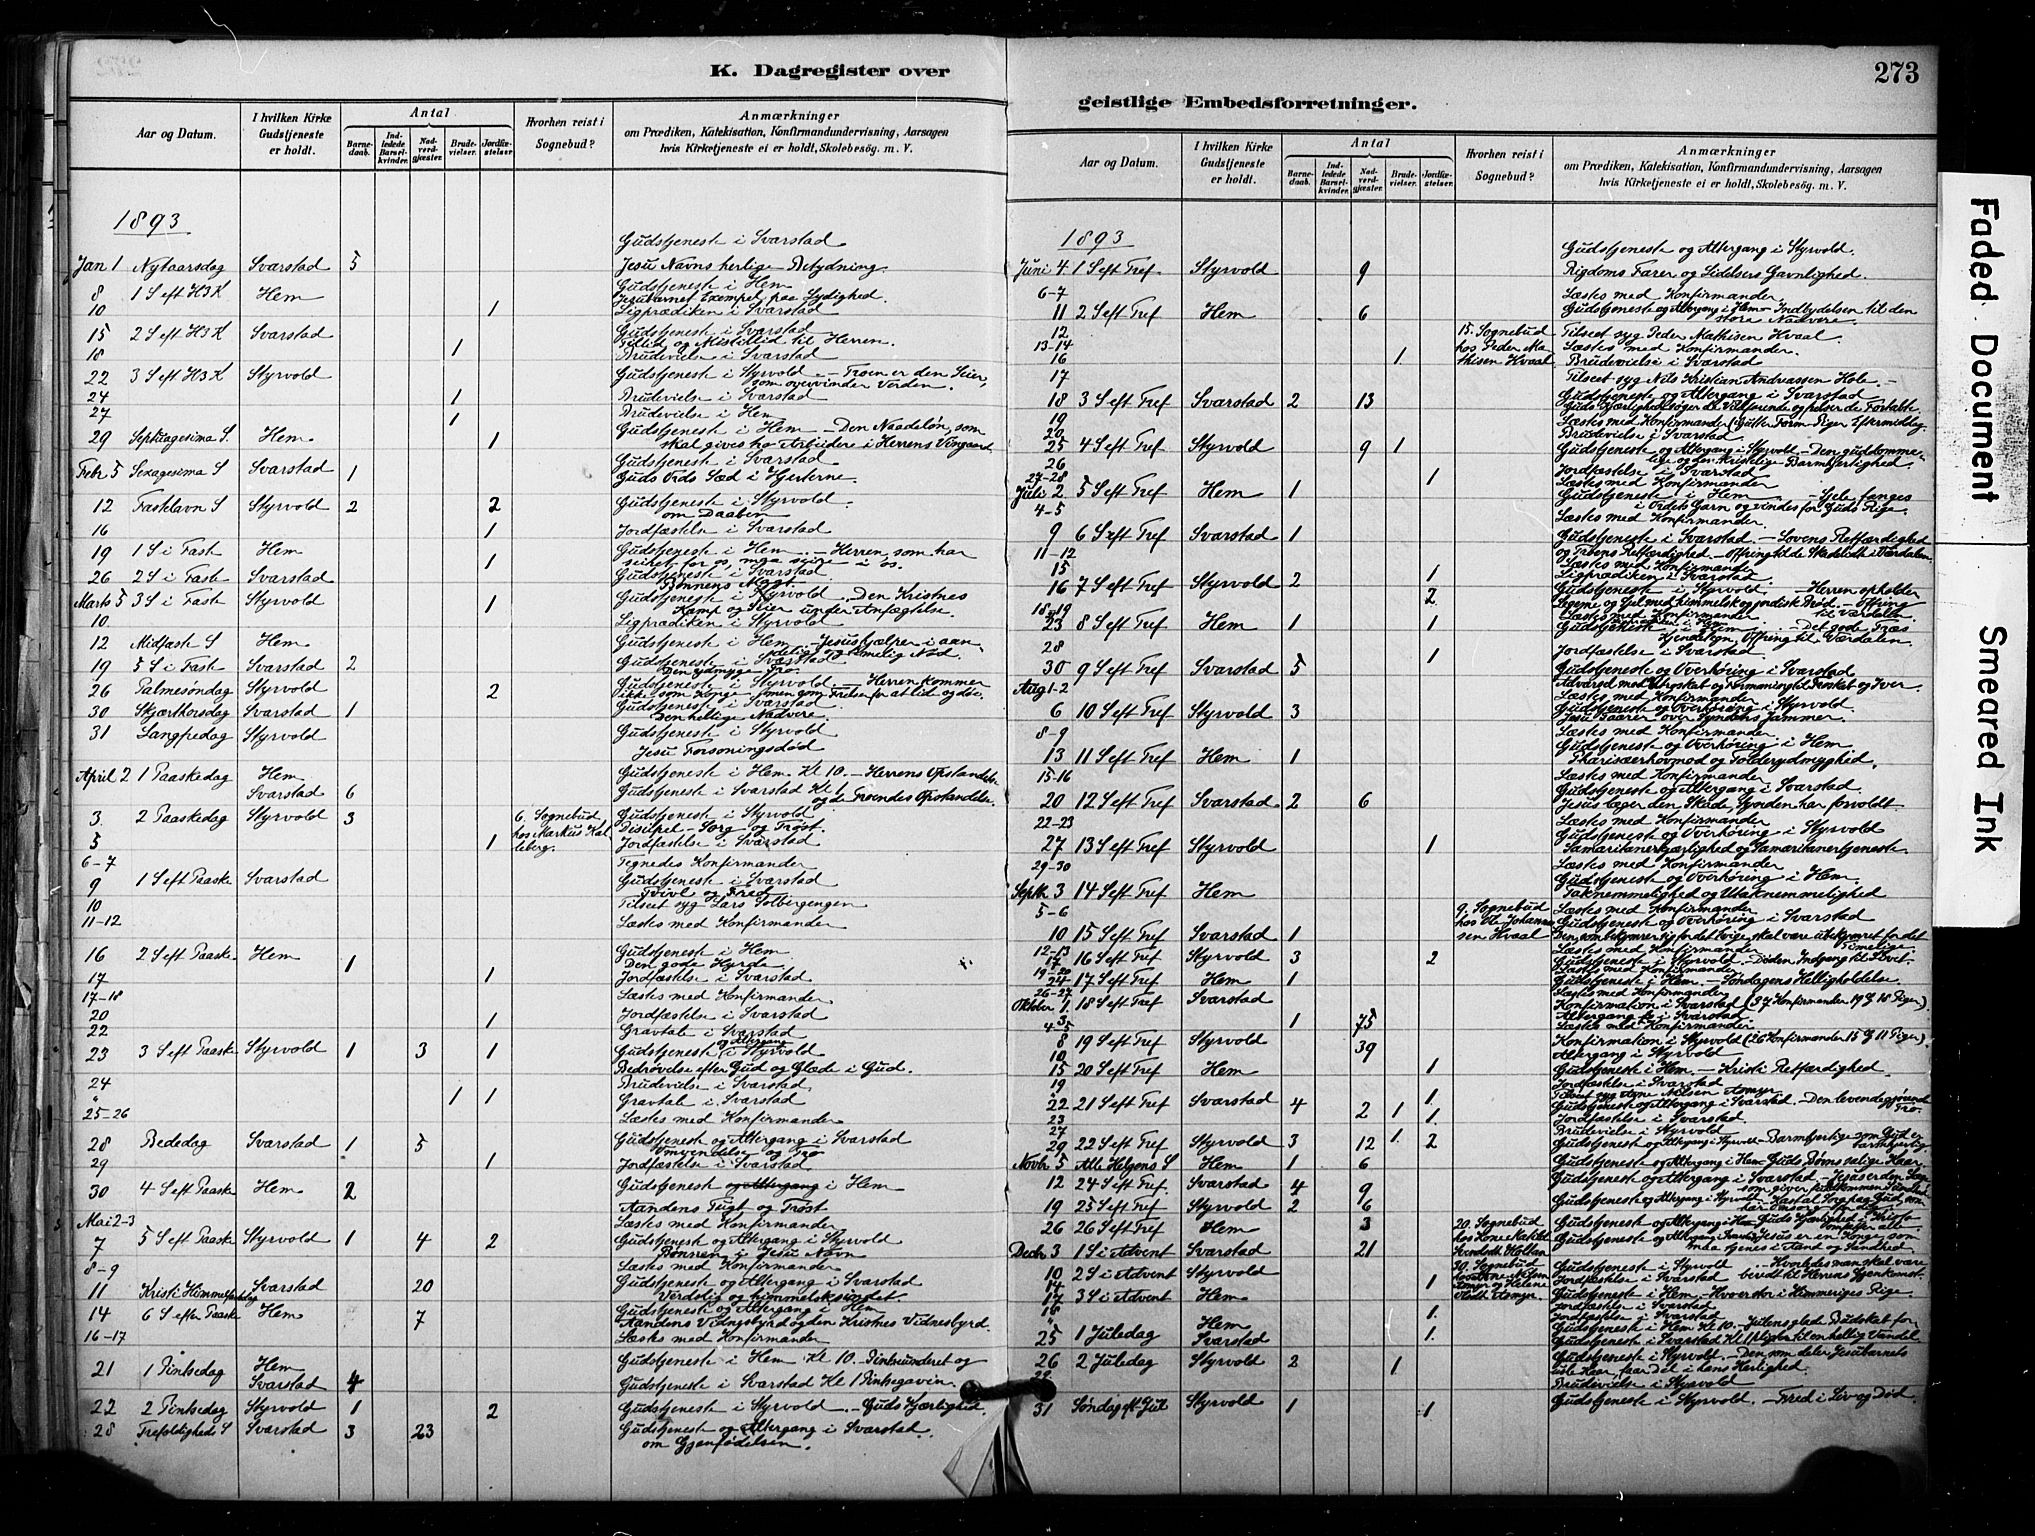 K. Dagregister over
Aar og Datum.
I hvilken Kirke Gudstjeneste er holdt.
Antal
Barnedaab.
Indledede Barselkvinder.
Nadverdgjæster.
Brudevielser.
Jordfæstelser.
Hvorhen reist i Sognebud?
Anmærkninger
om Prædiken, Katekisation, Konfirmandundervisning, Aarsagen
hvis Kirketjeneste ei er holdt, Skolebesög. m. V.
1893
Gudstjeneste i Svarstad
Jan 1 Nytaarsdag Svarstad 5 Jesu Navns herlige Betydning.
8 1 S eft H3K Hem Gudstjeneste i Hem
Jesubarnet Exempel paa Lydighed.
10 1 Ligprædiken i Svarstad
15 2 S eft H3K Svarstad Gudstjeneste i Svarstad
Tillid og Mistillid til Herren.
18 1 Brudevielse i Svarstad
22 3 S eft H3K Styrvold Gudstjeneste i Styrvold. – Troen er den Seier,
som overvinder Verden.
24 1 Brudevielse i Svarstad
27 1 Brudevielse i Hem
29 Septuagesima S. Hem 1 Gudstjeneste i Hem – Den Naadeløn, som
skal gives hos Arbeidere i Herrens Vingaard
Febr 5 Sexagesima S Svarstad 1 Gudstjeneste i Svarstad
Guds Ords Sæd i Hjerterne.
12 Fastelavn S Styrvold 2 2 Gudstjeneste i Styrvold.
om Daaben
16 1 Jordfæstelse i Svarstad
19 1 S i Fast Hem 1 Gudstjeneste i Hem. – Herren, som har
seiret for os, maa seire i os.
26 2 S i Faste Svarstad Gudstjeneste i Svarstad
Bønnens Magt.
Marts 5 3 S i Fast Styrvold 1 Gudstjeneste i Styrvold. Den Kristnes
Kamp og Seier under Anfægtelse.
10. Ligprædiken i Styrvold
12 Midfaste S Hem Gudstjeneste i Hem – Jesus hjælper i aan-
delig og timelig Nød.
19 5 S i Fast Svarstad 2 Gudstjeneste i Svarstad
Den ydmyge Tro.
26 Palmesøndag Styrvold 2 Gudstjeneste i Styrvold – Herren kommer
30 Skjærthorsdag Svarstad 1 Gudstjeneste i Svarstad.
Den hellige Nadvere.
31 Langfredag Styrvold Gudstjeneste i Styrvold
Jesu Forsoningsdød
April 2 1 Paaskedag Hem Gudstjeneste i Hem Kl 10. – Herrens Opstandelse
Svarstad 6 Gudstjeneste i Svarstad Kl 1
og de Troendes Opstandelse.
3 2 Paaskedag Styrvold 3 6. Sognebud Gudstjeneste i Styrvold
hos Markus Kal- Disciplel – Sorg og Trøst.
5 leberg. 1 Jordfæstelse i Svarstad
6-7 Tegnedes Konfirmander
9 1 S eft Paaske Svarstad Gudstjeneste i Svarstad
Tvivl og Fred
10 Tilseet syg Lars Solbergengen
11-12 Læstes med Konfirmander
16 2 S eft Paaske Hem 1 Gudstjeneste i Hem
Den gode Hyrde
17 1 Jordfæstelse i Svarstad
17-18 Læstes med Konfirmander
20 1 Jordfæstelse i Svarstad
22 Gravtale i Svarstad
23 3 S eft Paaske Styrvold 1 3 1 Gudstjeneste og Altergang i Styrvold
Bedrøvelse efter Gud og Glæde i Gud.
24 1 Brudevielse i Svarstad
" 1 Gravtale i Svarstad
25-26 Læstes med Konfirmander
28 Bededag Svarstad 1 5 Gudstjenest og Altergang i Svarstad
Omvendelse og Tro
29 1 Jordfæstelse i Svarstad.
30 4 S eft Paaske Hem 2 Gudstjenest og Altergang i Hem
Aandens Tugt og Trøst
Mai 2-3 Læstes med Konfirmander
7 5 S eft Paaske Styrvold 1 4 2 Gudstjenest og Altergang i Styrvold
Bønnen i Jesu Navn
8-9 Læstes med Konfirmander
11 Kristi Himmelfartsdag Svarstad 20 Gudstjenest og Altergang i Svarstad
Verdslig og himmelsksindet
14 6 S efter Paaske Hem 7 Gudstjenest og Altergang i Hem
Aandens Vidnesbyrd og den Kristnes Vidnesbyrd.
16-17 Læstes med Konfirmander
21 1 Pintsedag Hem Gudstjeneste i Hem Kl 10. Pintsunderet og
Svarstad 4 Gudstjeneste i Svarstad Kl 1 Pintsegaven
22 2 Pintsedag Styrvold 1 2 Gudstjeneste i Styrvold. – Guds Kjærlighed.
28 Trefoldigheds S Svarstad 3 23 Gudstjeneste og Altergang i Svarstad.
om Gjenfødelsen.
273
geistlige Embedsforretninger.
Aar og Datum.
I hvilken Kirke Gudstjeneste er holdt.
Antal
Barnedaab.
Indledede Barselkvinder.
Nadverdgjæster.
Brudevielser.
Jordfæstelser.
Hvorhen reist i Sognebud?
Anmærkninger
om Prædiken, Katekisation, Konfirmandundervisning, Aarsagen
hvis Kirketjeneste ei er holdt, Skolebesög. m. V.
1893
Gudstjeneste og Altergang i Styrvold.
Juni 4 1 S eft Tref. Styrvold 9 Rigdoms Farer og Lidelsers Gavnlighed.
6-7 Læstes med Konfirmander
11 2 S eft Tref Hem 6 Gudstjeneste og Altergang i Hem – Indbydelsen til den
store Nadvere.
12 15. Sognebud Tilseet syg Peder Mathisen Hvaal
13-14 hos Peder Ma- Læstes med Konfirmander.
16 1 thisen Hvaal Brudevielse i Svarstad
17 Tilseet syg Nils Kristian Andreassen Hole. –
18 3 S eft Tref Svarstad 2 13 Gudstjeneste og Altergang i Svarstad
Guds Kjærlighed søger de Vildfarende og frelser de Fortabte.
19 Læstes med Konfirmander (Gutter Form Piger Eftermiddag.
20 Brudevielse i Svarstad
25 4 S eft Tref Styrvold 9 1 Gudstjeneste og Altergang i Styrvold – Den guddomme-
lige og den kristelige Barmhjertighed
26 1 Jordfæstelse i Svarstad
27-28 Læstes med Konfirmander
Juli 2 5 S eft Tref Hem 1 Gudstjeneste i Hem – Sjele fanges
i Ordets Garn og vindes for Guds Rige.
4-5 Læstes med Konfirmander.
9 6 S eft Tref Svarstad 1 Gudstjeneste i Svarstad. – Lovens Retfærdighed
og Troens Retfærdighed – offring til de Skadelidte i Værdalen
11-12 Læstes med Konfirmander
15 1 Ligprædiken i Svarstad
16 7 S eft Tref Styrvold 2 2 Gudstjeneste i Styrvold – Herren opholder
Legeme og Sjel med himmelsk og jordisk Brød – Offring
til Værdalen
18-19 Læstes med Konfirmander
23 8 S eft Tref Hem 1 1 Gudstjeneste i Hem. Det gode Træs
Kjendetegn, Offring til Værdalen
28 1 Jordfæstelse i Svarstad
30 9 S eft Tref Svarstad 5 Gudstjeneste og Overhøring i Svarstad
Aug 1-2 Læstes med Konfirmander
6 10 S eft Tref Styrvold 3 Gudstjeneste og Overhøring i Styrvold
Jesu Taarer over Syndens Jammer.
8-9 Læstes med Konfirmander.
13 11 S eft Tref Hem 1 Gudstjeneste og Overhøring i Hem
Pharisæerhovmod og Tolderydmyghed.
15-16 Læstes med Konfirmander
20 12 S eft Tref Svarstad 2 6 Gudstjeneste og Altergang i Svarstad
Jesus læger den Skade, Synden har forvoldt.
22-23 Læstes med Konfirmander
27 13 S eft Tref Styrvold 1 Gudstjeneste og Overhøring i Styrvold
Samaritanerkjærlighed og Samaritanertjeneste.
29-30 Læstes med Konfirmander
Septbr 3 14 S eft Tref Hem Gudstjeneste og Overhøring i Hem.
Taknemmelighed og Utaknemmelighed
5-6 9. Sognebud Læstes med Konfirmander
10 15 S eft Tref Svarstad 1 hos Ole Johannes- Gudstjeneste og Overhøring i Svarstad
sen Hvaal Den, som bekymrer sig for det Evige, skal være ubekymret for det
Timelige
12-13 Læstes med Konfirmander
17 16 S eft Tref Styrvold 3 2 Gudstjeneste i Styrvold – Døden Indgang til Livet.
19-20 Læstes med Konfirmander
24 17 S eft Tref Hem 1 Gudstjeneste i Hem. – Søndagens Helligholdelse
26-27 Læstes med Konfirmander
Oktober 1. 18 S eft Tref Svarstad Konfirmation i Svarstad (37 Konfirmander 19 G 18 Piger)
3 1 75 Altergang i Svarstad
4-5 Læstes med Konfirmander
8 19 S eft Tref Styrvold 39 Konfirmation i Styrvold (26 Konfirmander 15 G 11 Piger).
10 Altergang i Styrvold
15 20 S eft Tref Hem 1 Gudstjeneste i Hem – Kristi Retfærdighed
19 Jordfæstelse i Svarstad
" 1. Tilseet syg Arne Nilsen Asmyr
22 21 S eft Tref Svarstad 4 2 1 1. Gudstjeneste og Altergang i Svarstad. – Den levendegjørende
Tro.
23 Jordfæstelse i Svarstad.
27 1. Brudevielse i Styrvold
29 22 S eft Tref Styrvold 3 12 2 Gudstjeneste og Altergang i Styrvold – Barmhjertige som Gud er
barmhjertig
Novbr 5 Alle Helgens S Hem 1 6 Gudstjeneste og Altergang i Hem Guds Børns salige Kaar
12 24 S eft Tref. Svarstad 4 9 Gudstjeneste og Altergang i Svarstad –
19 25 S eft Tref Styrvold 2 6 Gudstjeneste og Altergang i Styrvold –
26 26 S eft Tref Hem 3 20. Sognebud Gudstjeneste og Altergang i Hem Guds Kjærlighed i Kristo
Decbr 3 1 S i Advent Svarstad 21 Gudstjeneste og Altergang i Svarstad Jesus er en Konge som
maa tjenes i Aand og Sandhed
10 2 S i Advent Styrvold 30. Sognebud Gudstjeneste i Styrvold – Hvorledes man skal være
beredt til Herrens Gjenkomst.
14 1 Jordfæstelse i Svarstad
17 3 S i Advent Hem Gudstjeneste i Hem. – Hvo er stor i Himmeriges Rige
16 1. Jordfæstelse i Svarstad
" 1. Jordfæstelse i Svarstad
25 1 Juledag Hem Gudstjeneste i Hem Kl 10. – Julens glade Budskab for-
Svarstad Gudstjeneste i Svarstad Kl 1 pligter til en hellig Vandel
26 2 Juledag Styrvold 2 1 Gudstjeneste i Styrvold – Den som deler Jesubarnets
Brudevielse i Styrvold
31 Søndag eft Jul Styrvold 1 1 Gudstjeneste i Styrvold. – Fred i Liv og Død.
Faded Document
Smeared Ink